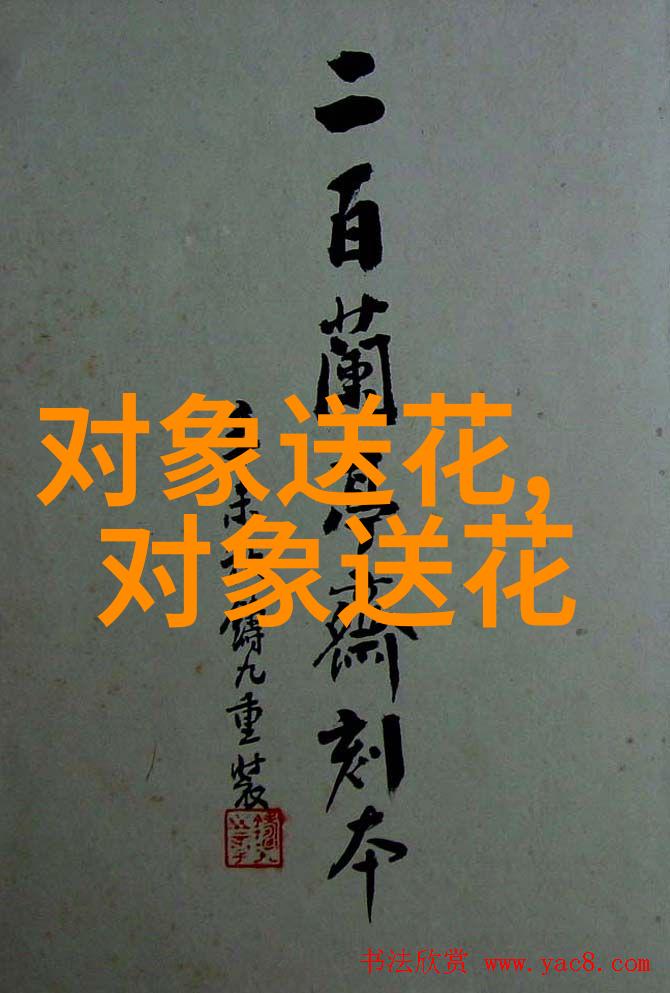 二百蘭亭齋刻本
鑄九重裝
对象送花,
对象送花
书法欣赏 www.yac8.com